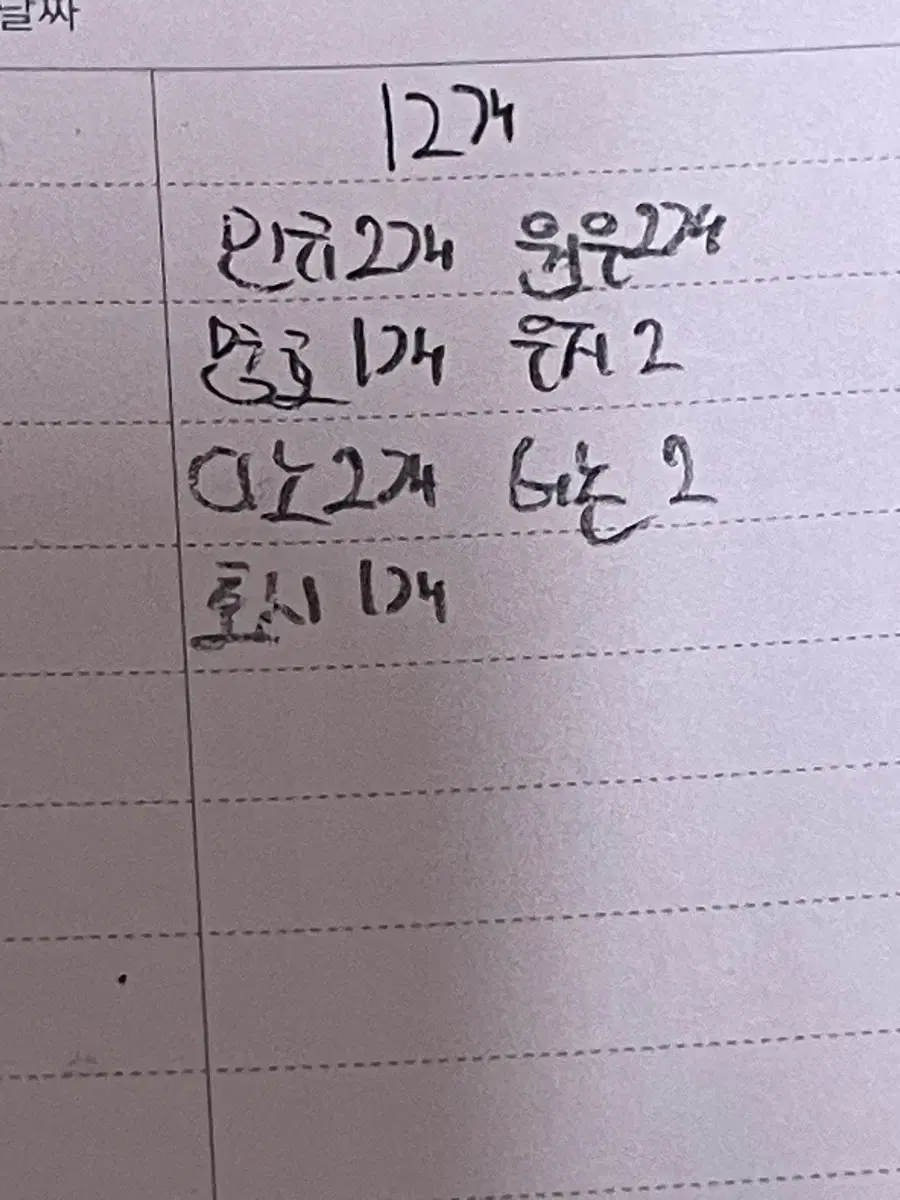 날짜
12개
민규2개 원우2개
명호 1개 윤지 2
디노2개 버논 2
호시 1개